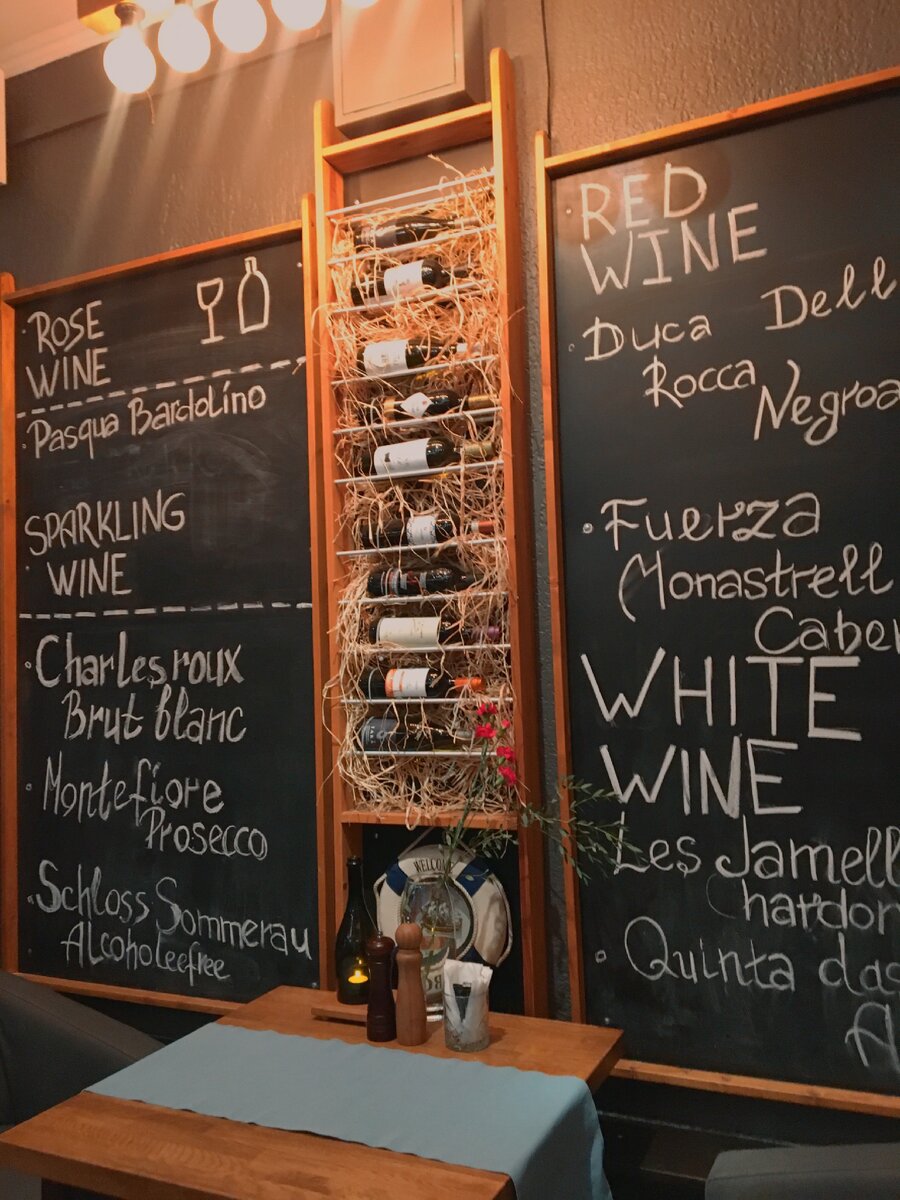 ROSE
WINE
Pasqua Bardolino
SPARKLING
WINE
Charles roux
Brut blanc
Montefiore
Prosecco
Schloss Sommerau
Alcoholeefree
WELCOME
RED
WINE
Duca Dell
Rocca
Negroa
Fuerza
Monastrell
Caber
WHITE
WINE
Les Jamell
hardon
Quinta das
A